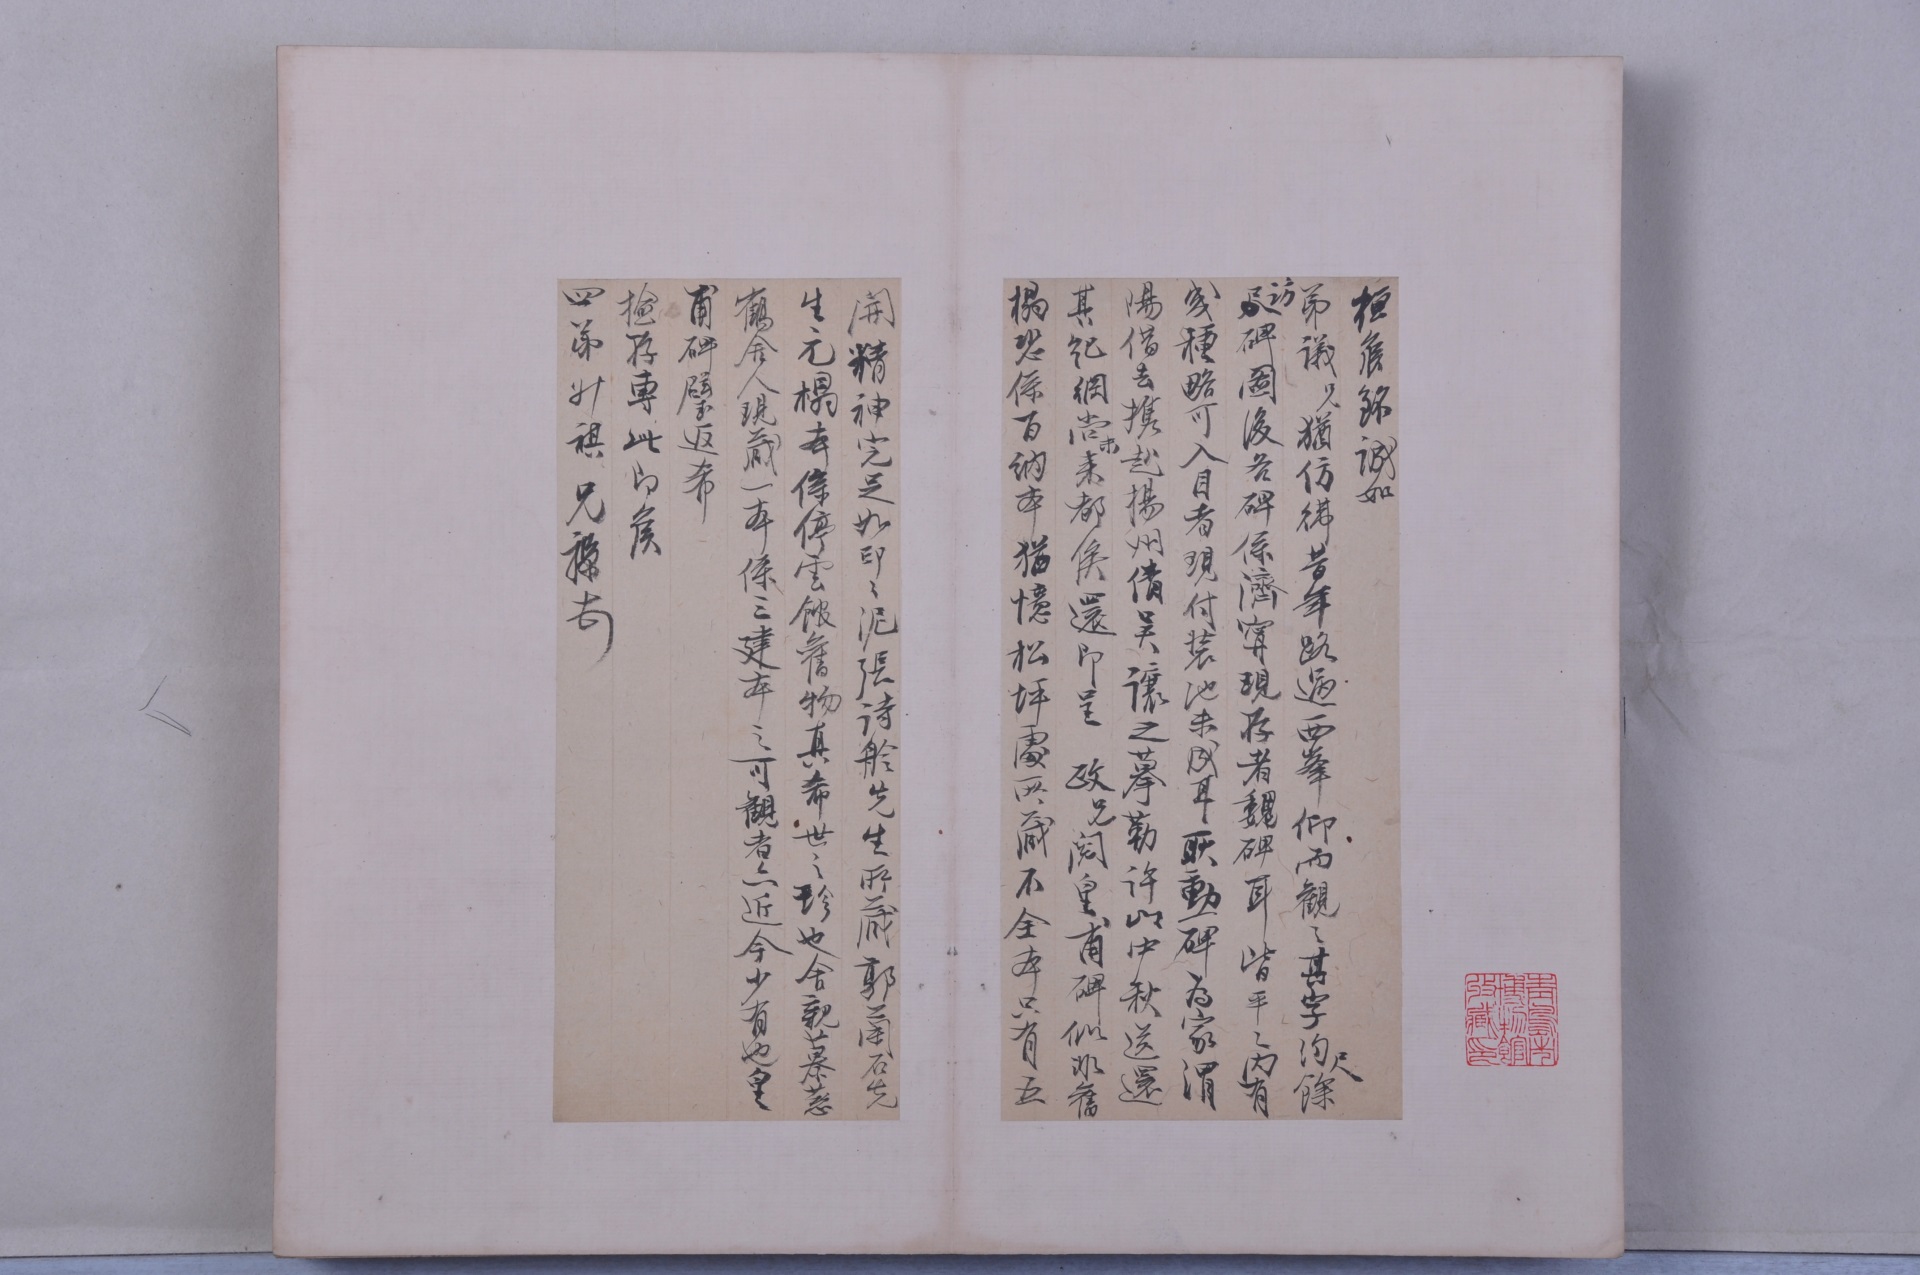 桓侯銘誠如
弟議只猶仿彿昔年路過西峯仰而觀之其字約尺餘
及訪碑圖後各碑係濟寧現存者魏碑耳皆平平內有
幾種略可入目者現付裝池未成耳耿勳碑為家渭
陽借去攜赴揚州倩吳讓之摹勒許以中秋送還
其紀綱尚未來都俟還即呈 政只閱皇甫碑似非舊
榻恐係百納本猶憶松坪處所藏不全本只有五
開精神完足如印印泥張詩舲先生所藏郭蘭石先
生元榻本係停雲館舊物真希世之珍也舍親慕慈
鶴舍人現藏一本係三建本之可觀者亦近今少有也皇
甫碑璧返希
檢存專此即侯
四弟升祺 兄祿吉
吉林省博物館收藏印